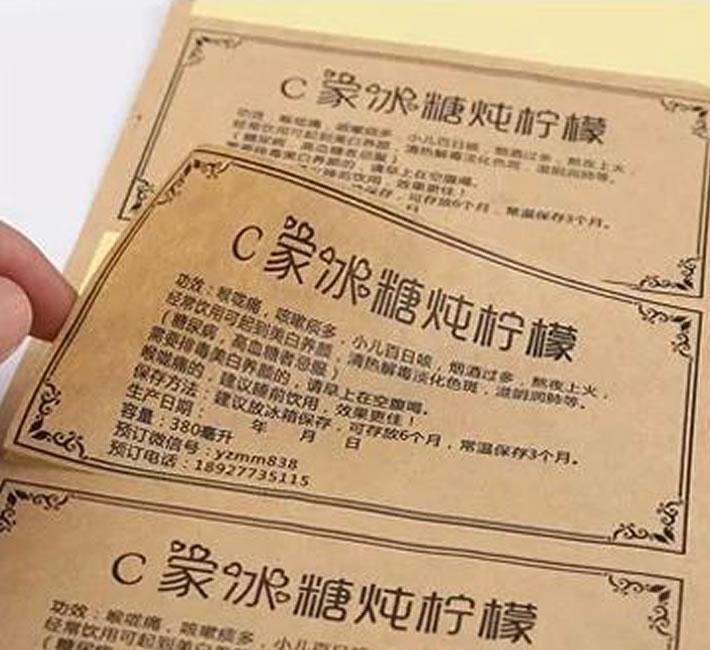 C 蒙冰糖炖柠檬
功效：喉咙痛，咳嗽痰多，小儿百日咳，烟酒过多，熬夜上火，
经常饮用可起到美白养颜，清热解毒淡化色斑，滋阴润肺等。
（糖尿病，高血糖者忌服）
需要排毒美白养颜的，请早上在空腹喝。
睡前饮用，效果更佳！
保存，可存放6个月，常温保存3个月。
日
C 蒙冰糖炖柠檬
功效：喉咙痛，咳嗽痰多，小儿百日咳，烟酒过多，熬夜上火，
经常饮用可起到美白养颜，清热解毒淡化色斑，滋阴润肺等。
（糖尿病，高血糖者忌服）
需要排毒美白养颜的，请早上在空腹喝。
喉咙痛的，建议睡前饮用，效果更佳！
保存方法：建议放冰箱保存，可存放6个月，常温保存3个月。
生产日期： 年 月 日
容量：380毫升
预订微信号：yzmm838
预订电话：18927735115
C 蒙冰糖炖柠檬
功效：喉咙痛，咳嗽痰多，小儿百
经常饮用可起到美白养
（糖尿病